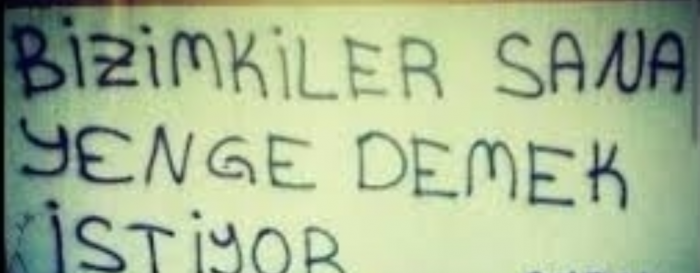 BiZiMKiLER SANA
YENGE DEMEK
İSTİYOR